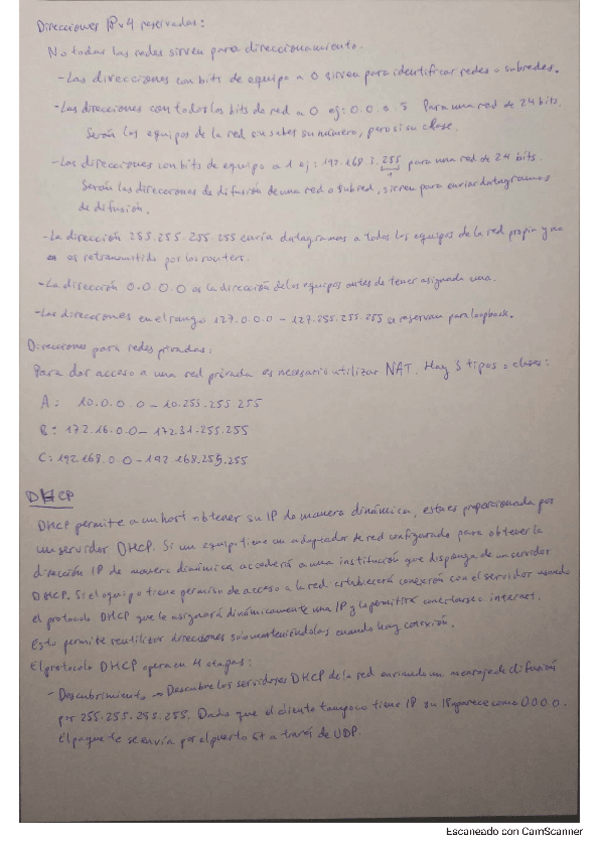 Direcciones IPv4 reservadas:
No todas las redes sirven para direccionamiento.
- Las direcciones con bits de equipo a 0 sirven para identificar redes o subredes.
- Las direcciones con todos los bits de red a 0 ej: 0.0.0.5 Para una red de 24 bits.
Serán los equipos de la red sin saber su número, pero si su clase.
- Las direcciones con bits de equipo a 1 ej: 192.168.1.255 para una red de 24 bits.
Serán las direcciones de difusión de una red o subred, sirven para enviar datagramas
de difusión.
- La dirección 255.255.255.255 envía datagramas a todos los equipos de la red propia y no
es retransmitido por los routers.
- La dirección 0.0.0.0 es la dirección de los equipos antes de tener asignada una.
- Las direcciones en el rango 127.0.0.0 - 127.255.255.255 se reservan para loopback.
Direcciones para redes privadas:
Para dar acceso a una red privada es necesario utilizar NAT. Hay 3 tipos o clases:
A: 10.0.0.0 - 10.255.255.255
B: 172.16.0.0 - 172.31.255.255
C: 192.168.0.0 - 192.168.255.255
DHCP
DHCP permite a un host obtener su IP de manera dinámica, esta es proporcionada por
un servidor DHCP. Si un equipo tiene un adaptador de red configurado para obtener la
dirección IP de manera dinámica accederá a una institución que disponga de un servidor
DHCP. Si el equipo tiene permiso de acceso a la red establecerá conexión con el servidor usando
el protocolo DHCP que le asignará dinámicamente una IP y le permitirá conectarse a internet.
Esto permite reutilizar direcciones solo manteniéndolas cuando hay conexión.
El protocolo DHCP opera en 4 etapas:
- Descubrimiento → Descubre los servidores DHCP de la red enviando un mensaje de difusión
por 255.255.255.255. Dado que el cliente tampoco tiene IP su IP aparece como 0.0.0.0.
El paquete se envía por el puerto 67 a través de UDP.
Escaneado con CamScanner